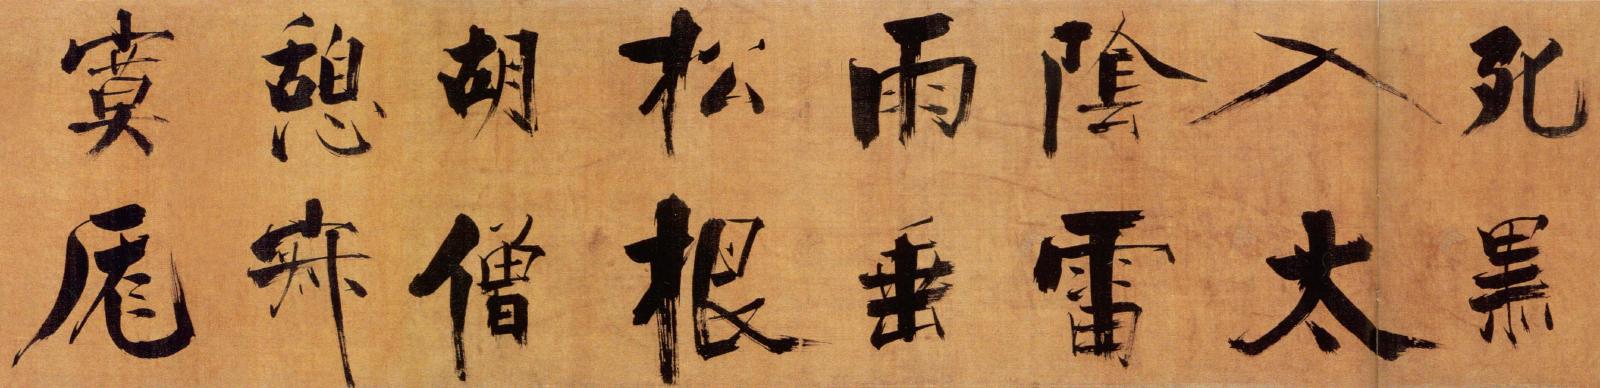 死黑
入太
陰雷
雨垂
松根
胡僧
憩寂
寞厖